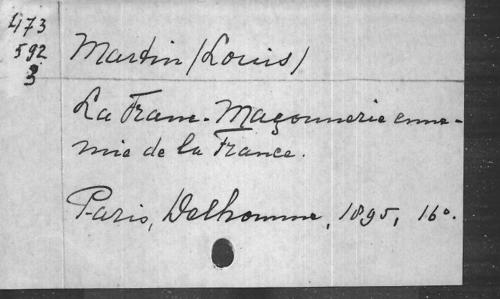 473
592
3
Martin (Louis)
La Franc-Maçonnerie enne-
mie de la France.
Paris, Delhomme, 1895, 16º.